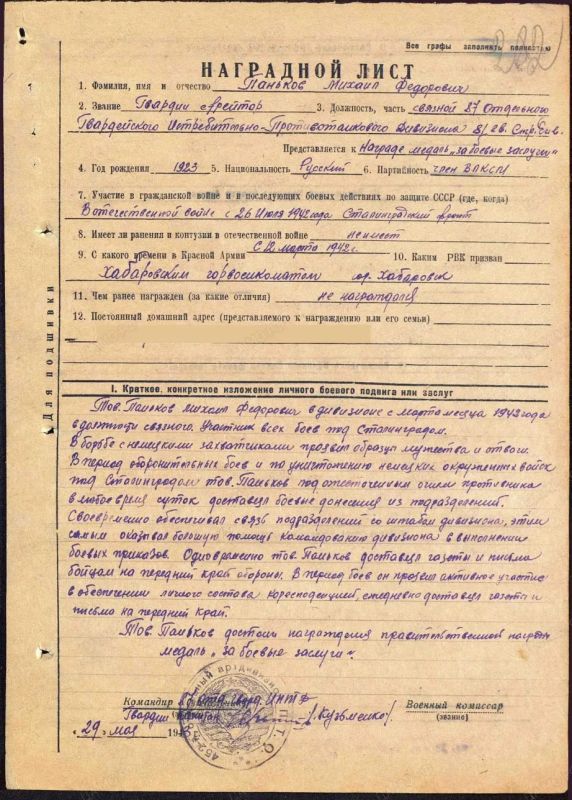 Все графы заполнять полностью
НАГРАДНОЙ ЛИСТ
1. Фамилия, имя и отчество Паньков Михаил Федорович
2. Звание Гвардии ефрейтор 3. Должность, часть связной 87 Отдельного
Гвардейского Истребительно-Противотанкового Дивизиона
Представляется к Награде медаль „за боевые заслуги"
4. Год рождения 1923 5. Национальность Русский 6. Партийность член ВЛКСМ
7. Участие в гражданской войне и в последующих боевых действиях по защите СССР (где, когда)
В отечественной войне с 26 Июля 1942 года Сталинградский фронт
8. Имеет ли ранения и контузии в отечественной войне неимеет
9. С какого времени в Красной Армии С 12 марта 1942 г. 10. Каким РВК призван
Хабаровским горвоенкоматом гор. Хабаровск
11. Чем ранее награжден (за какие отличия) не награждался
12. Постоянный домашний адрес (представляемого к награждению или его семьи)
Для подшивки
I. Краткое, конкретное изложение личного боевого подвига или заслуг
Тов. Паньков Михаил Федорович в дивизионе с марта месяца 1942 года
в должности связного. Участник всех боев под Сталинградом.
В борьбе с немецкими захватчиками проявил образцы мужества и отваги.
В период оборонительных боев и по уничтожению немецких окруженных войск
под Сталинградом тов. Паньков под ожесточенным огнем противника
в любое время суток доставлял боевые донесения из подразделений.
Своевременно обеспечивал связь подразделений со штабом дивизиона, этим
самым оказывал большую помощь командованию дивизиона в выполнении
боевых приказов. Одновременно тов. Паньков доставлял газеты и письма
бойцам на передний край обороны. В период боев он проявил активное участие
в обеспечении личного состава кореспонденцией, ежедневно доставлял газеты и
письма на передний край.
Тов. Паньков достоин награждения правительственной награды
медаль „За боевые заслуги".
Командир
Гвардии Капитан /Кузьменко/
Военный комиссар
(звание)
„29" мая 194